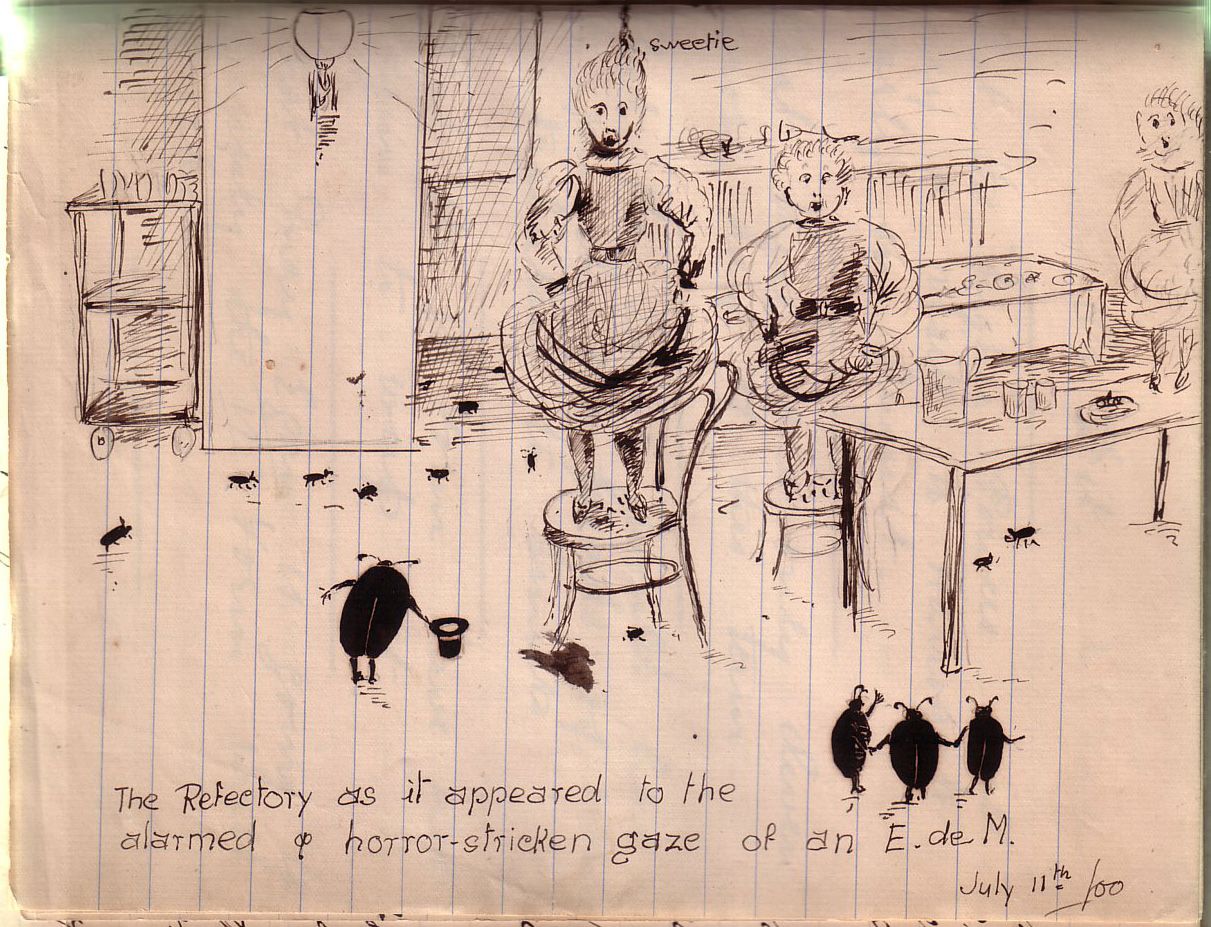 sweetie
The Refectory as it appeared to the
alarmed & horror-stricken gaze of an E. de M.
July 11th /00